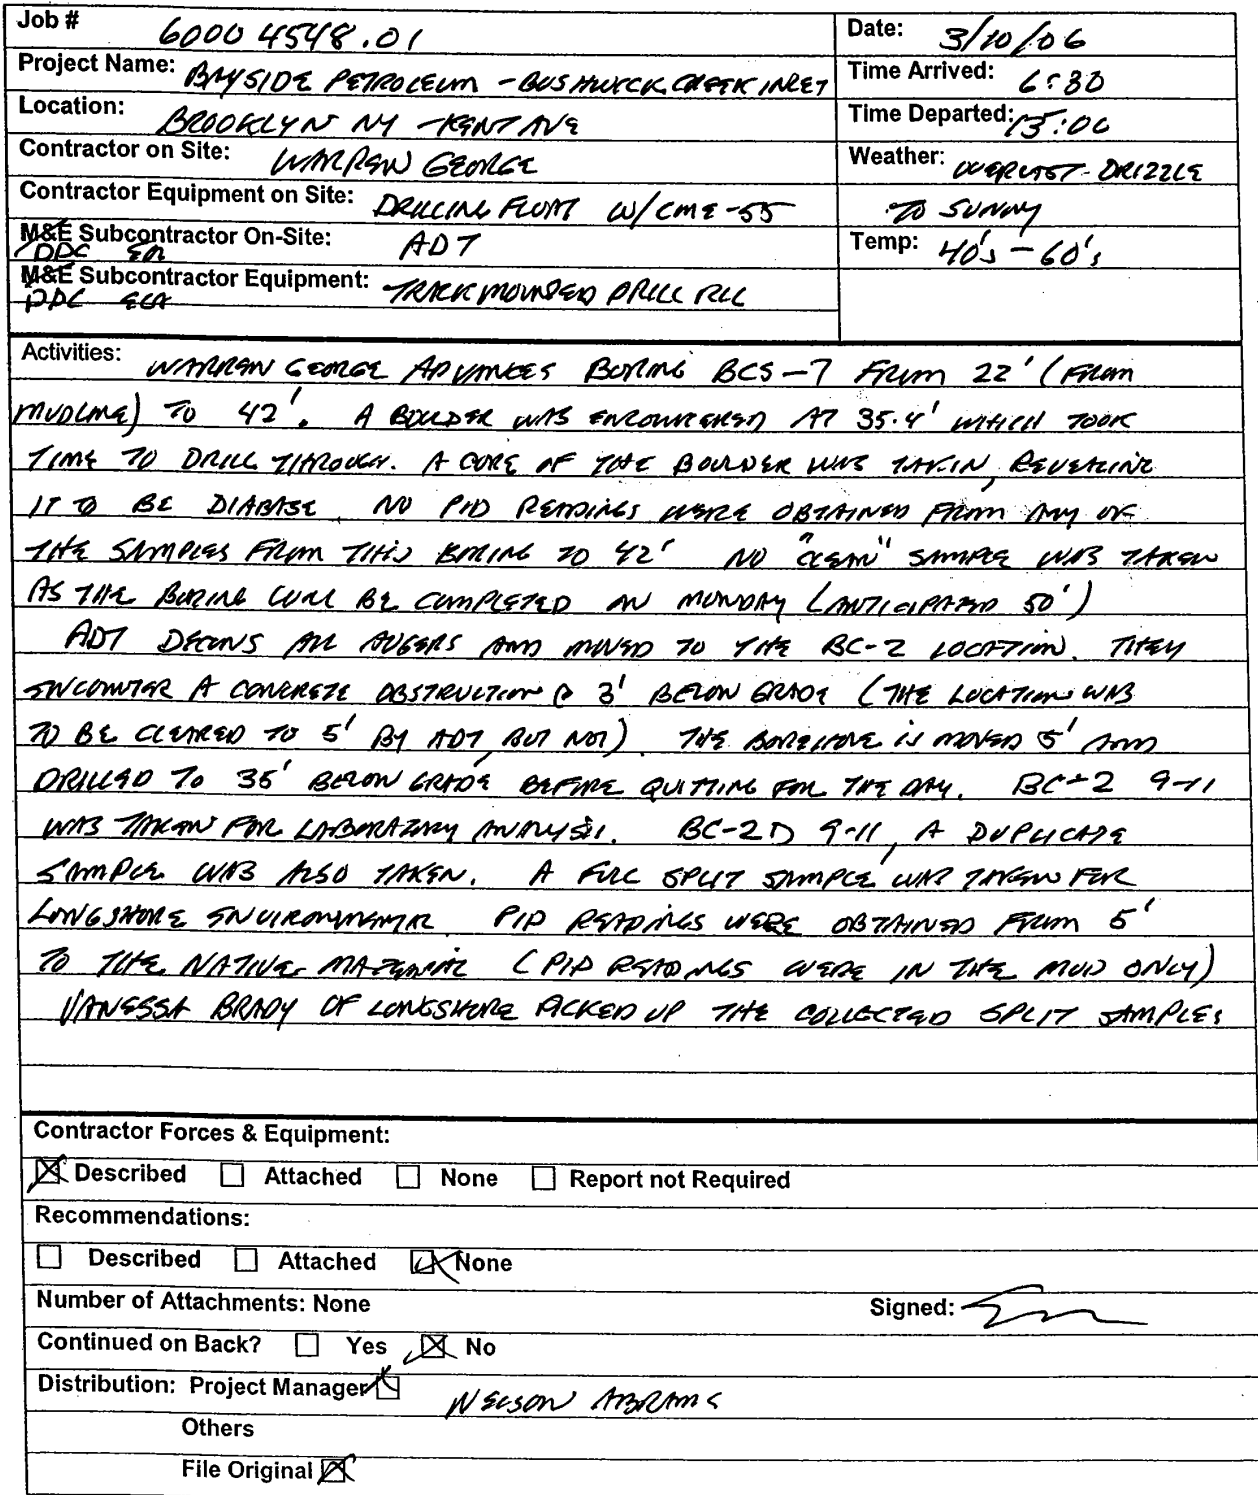 Job # 60004548.01 Date: 3/10/06
Project Name: BAYSIDE PETROLEUM - BUSHWICK CREEK INLET Time Arrived: 6:30
Location: BROOKLYN NY - KENT AVE Time Departed: 15:00
Contractor on Site: WARREN GEORGE Weather: OVERCAST - DRIZZLE
Contractor Equipment on Site: DRILLING FLOAT W/CME-55 TO SUNNY
M&E Subcontractor On-Site: ADT Temp: 40's - 60's
DDC
M&E Subcontractor Equipment: TRACK MOUNTED DRILL RIG
DDC
Activities: WARREN GEORGE ADVANCES BORING BCS-7 FROM 22' (FROM
MUDLINE) TO 42'. A BOULDER WAS ENCOUNTERED AT 35.4' WHICH TOOK
TIME TO DRILL THROUGH. A CORE OF THE BOULDER WAS TAKEN, REVEALING
IT TO BE DIABASE. NO PID READINGS WERE OBTAINED FROM ANY OF
THE SAMPLES FROM THIS BORING TO 42' NO "CLEAN" SAMPLE WAS TAKEN
AS THE BORING WILL BE COMPLETED ON MONDAY (ANTICIPATED 50')
ADT DECONS ALL AUGERS AND MOVED TO THE BC-2 LOCATION. THEY
ENCOUNTER A CONCRETE OBSTRUCTION @ 3' BELOW GRADE (THE LOCATION WAS
TO BE CLEARED TO 5' BY ADT, BUT NOT). THE BOREHOLE IS MOVED 5' AND
DRILLED TO 35' BELOW GRADE BEFORE QUITTING FOR THE DAY. BC-2 9-11
WAS TAKEN FOR LABORATORY ANALYSIS. BC-2D 9-11, A DUPLICATE
SAMPLE WAS ALSO TAKEN. A FULL SPLIT SAMPLE WAS TAKEN FOR
LONGSHORE ENVIRONMENTAL. PID READINGS WERE OBTAINED FROM 5'
TO THE NATIVE MATERIAL (PID READINGS WERE IN THE MUD ONLY)
VANESSA BRADY OF LONGSHORE PICKED UP THE COLLECTED SPLIT SAMPLES
Contractor Forces & Equipment:
Described Attached None Report not Required
Recommendations:
Described Attached None
Number of Attachments: None Signed:
Continued on Back? Yes No
Distribution: Project Manager NELSON ABRAMS
Others
File Original